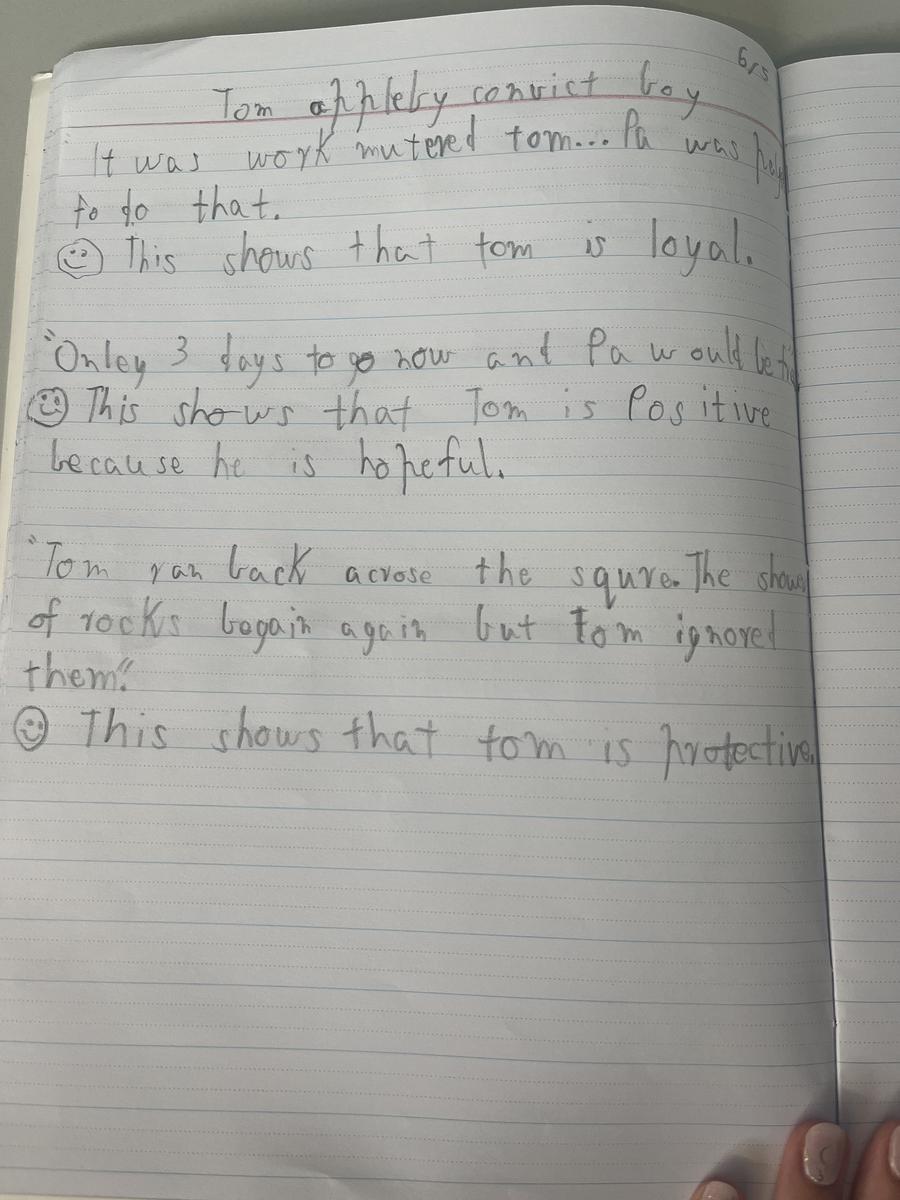 6/5
Tom appleby convict boy
"It was work mutered tom... Pa was
to do that.
This shows that tom is loyal.
"Onley 3 days to go now and Pa would be
This shows that Tom is Positive
because he is hopeful.
"Tom ran back acrose the squre. The shower
of rocks bogain again but tom ignored
them".
This shows that tom is protective.